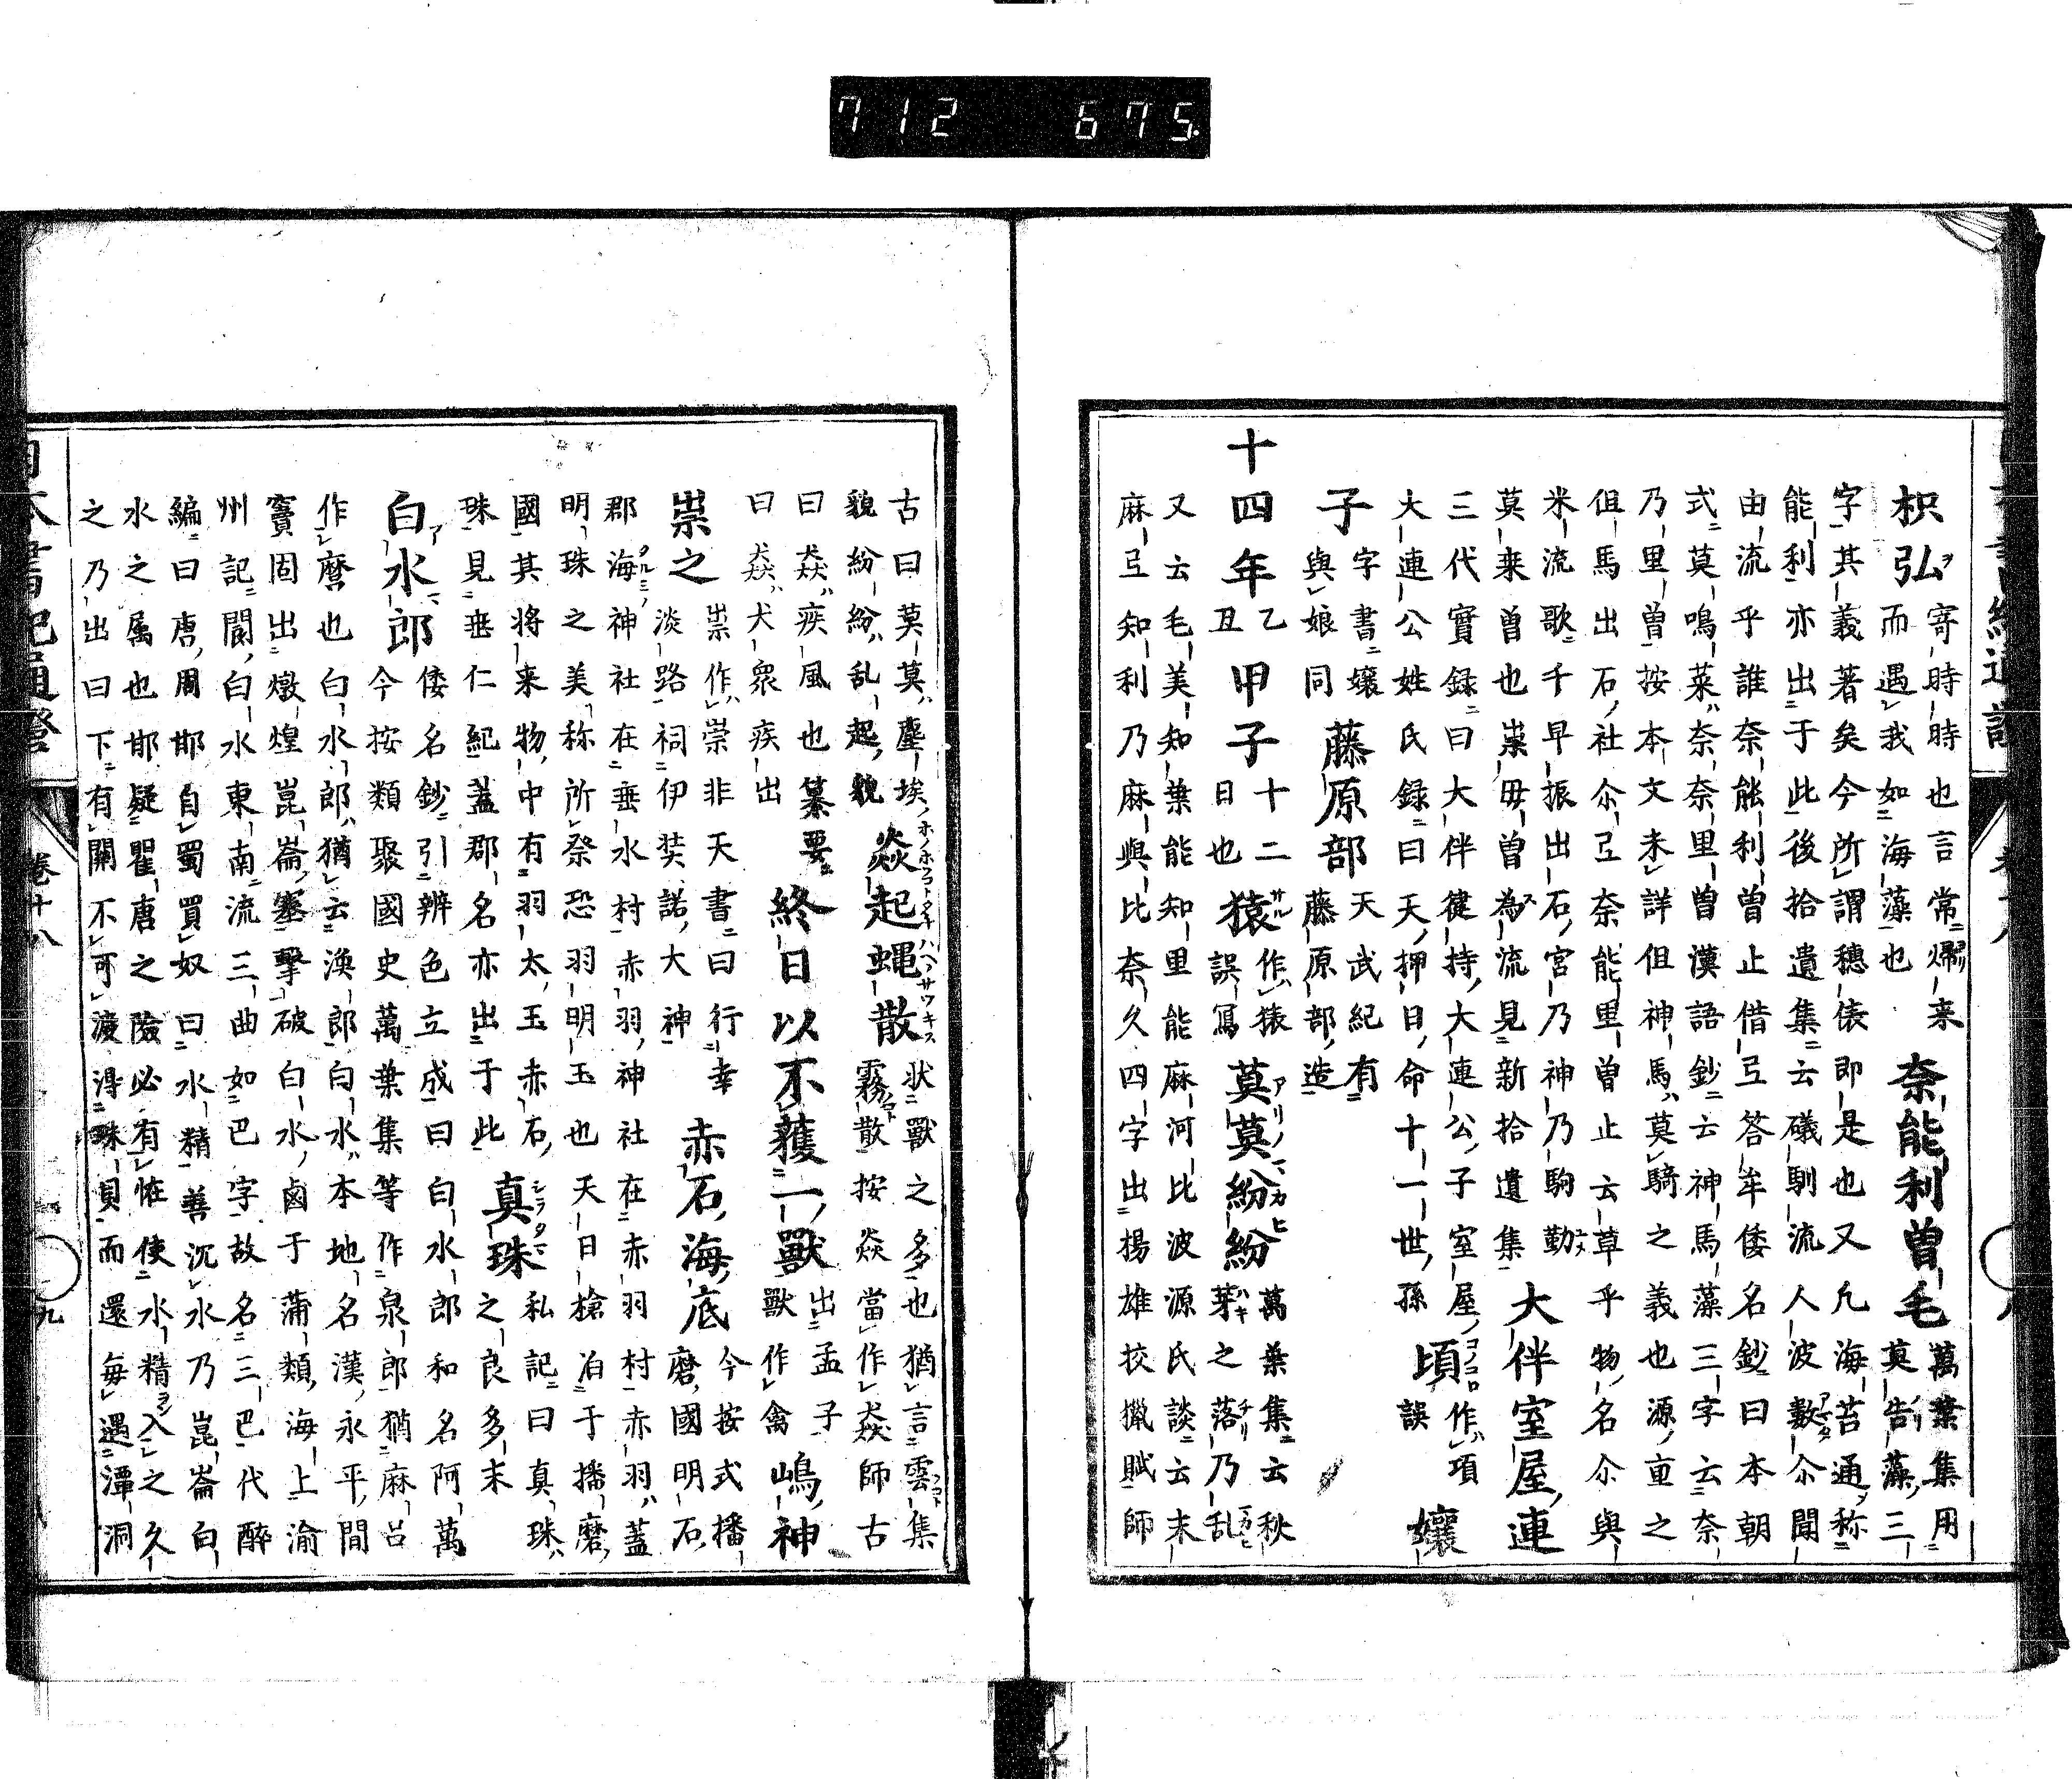 712 675
枳弘寄時時也言常歸来
而遇我如海藻也奈能利曽毛萬葉集用
莫告藻三
字其義著矣今所謂穂俵即是也又凢海苔通称
能利亦出于此後拾遺集云礒馴流人波數尒聞
由流乎誰奈能利曽止借弖答牟倭名鈔曰本朝
式莫鳴菜奈奈里曽漢語鈔云神馬藻三字云奈
乃里曽按本文未詳但神馬莫騎之義也源重之
但馬出石社尒弖奈能里曽止云草乎物名尒與
米流歌千早振出石宮乃神乃駒勤
莫来曽也祟毋曽為流見新拾遺集大伴室屋連
三代實録曰大伴健持大連公子室屋
大連公姓氏録曰天押日命十一世孫頃作項
誤孃
子字書孃
與娘同藤原部天武紀有
藤原部造
十四年乙
丑甲子十二
日也猿作猿
誤寫莫莫紛紛萬葉集云秋
芽之落乃乱
又云毛美知葉能知里能麻河比波源氏談云末
麻弖知利乃麻與比奈久四字出揚雄挍獵賦師
古曰莫莫塵埃
貌紛紛乱起貌焱起蝿散状獣之多也猶言雲集
霧散按焱當作猋師古
曰猋疾風也纂要
曰猋犬衆疾出終日以不獲一獸出孟子
獸作禽嶋神
祟之祟作崇非天書曰行幸
淡路祠伊奘諾大神赤石海底今按式播
磨國明石
郡海神社在垂水村赤羽神社在赤羽村赤羽蓋
明珠之美称所祭恐羽明玉也天日槍泊于播磨
國其将来物中有羽太玉赤石真珠私記曰真珠
之良多末
珠見垂仁紀蓋郡名亦出于此
白水郎倭名鈔引辨色立成曰白水郎和名阿萬
今按類聚國史萬葉集等作泉郎猶麻呂
作麿也白水郎猶云漁郎白水本地名漢永平間
竇固出燉煌崑崙塞撃破白水鹵于蒲類海上渝
州記閬白水東南流三曲如巴字故名三巴代醉
編曰唐周邯自蜀買奴曰水精善沉水乃崑崙白
水之属也邯疑瞿唐之險必有怪使水精入之久
之乃出曰下有關不可渡得珠貝而還毎遇潭洞
卷十八
九